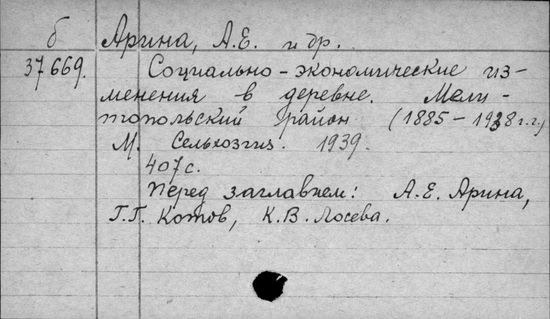 б Арина, А.Е. и др.
37669. Социально-экономические из-
менения в деревне. Мели-
топольский район (1885-1938 г.г.)
М. Сельхозгиз. 1939.
407 с.
Перед заглавием: А.Е. Арина,
Г.Г. Котов, К.В. Лосева.